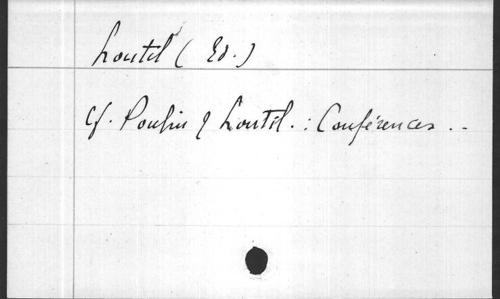 Loutil (Ed.)
cf. Poulin & Loutil. : Conférences ..